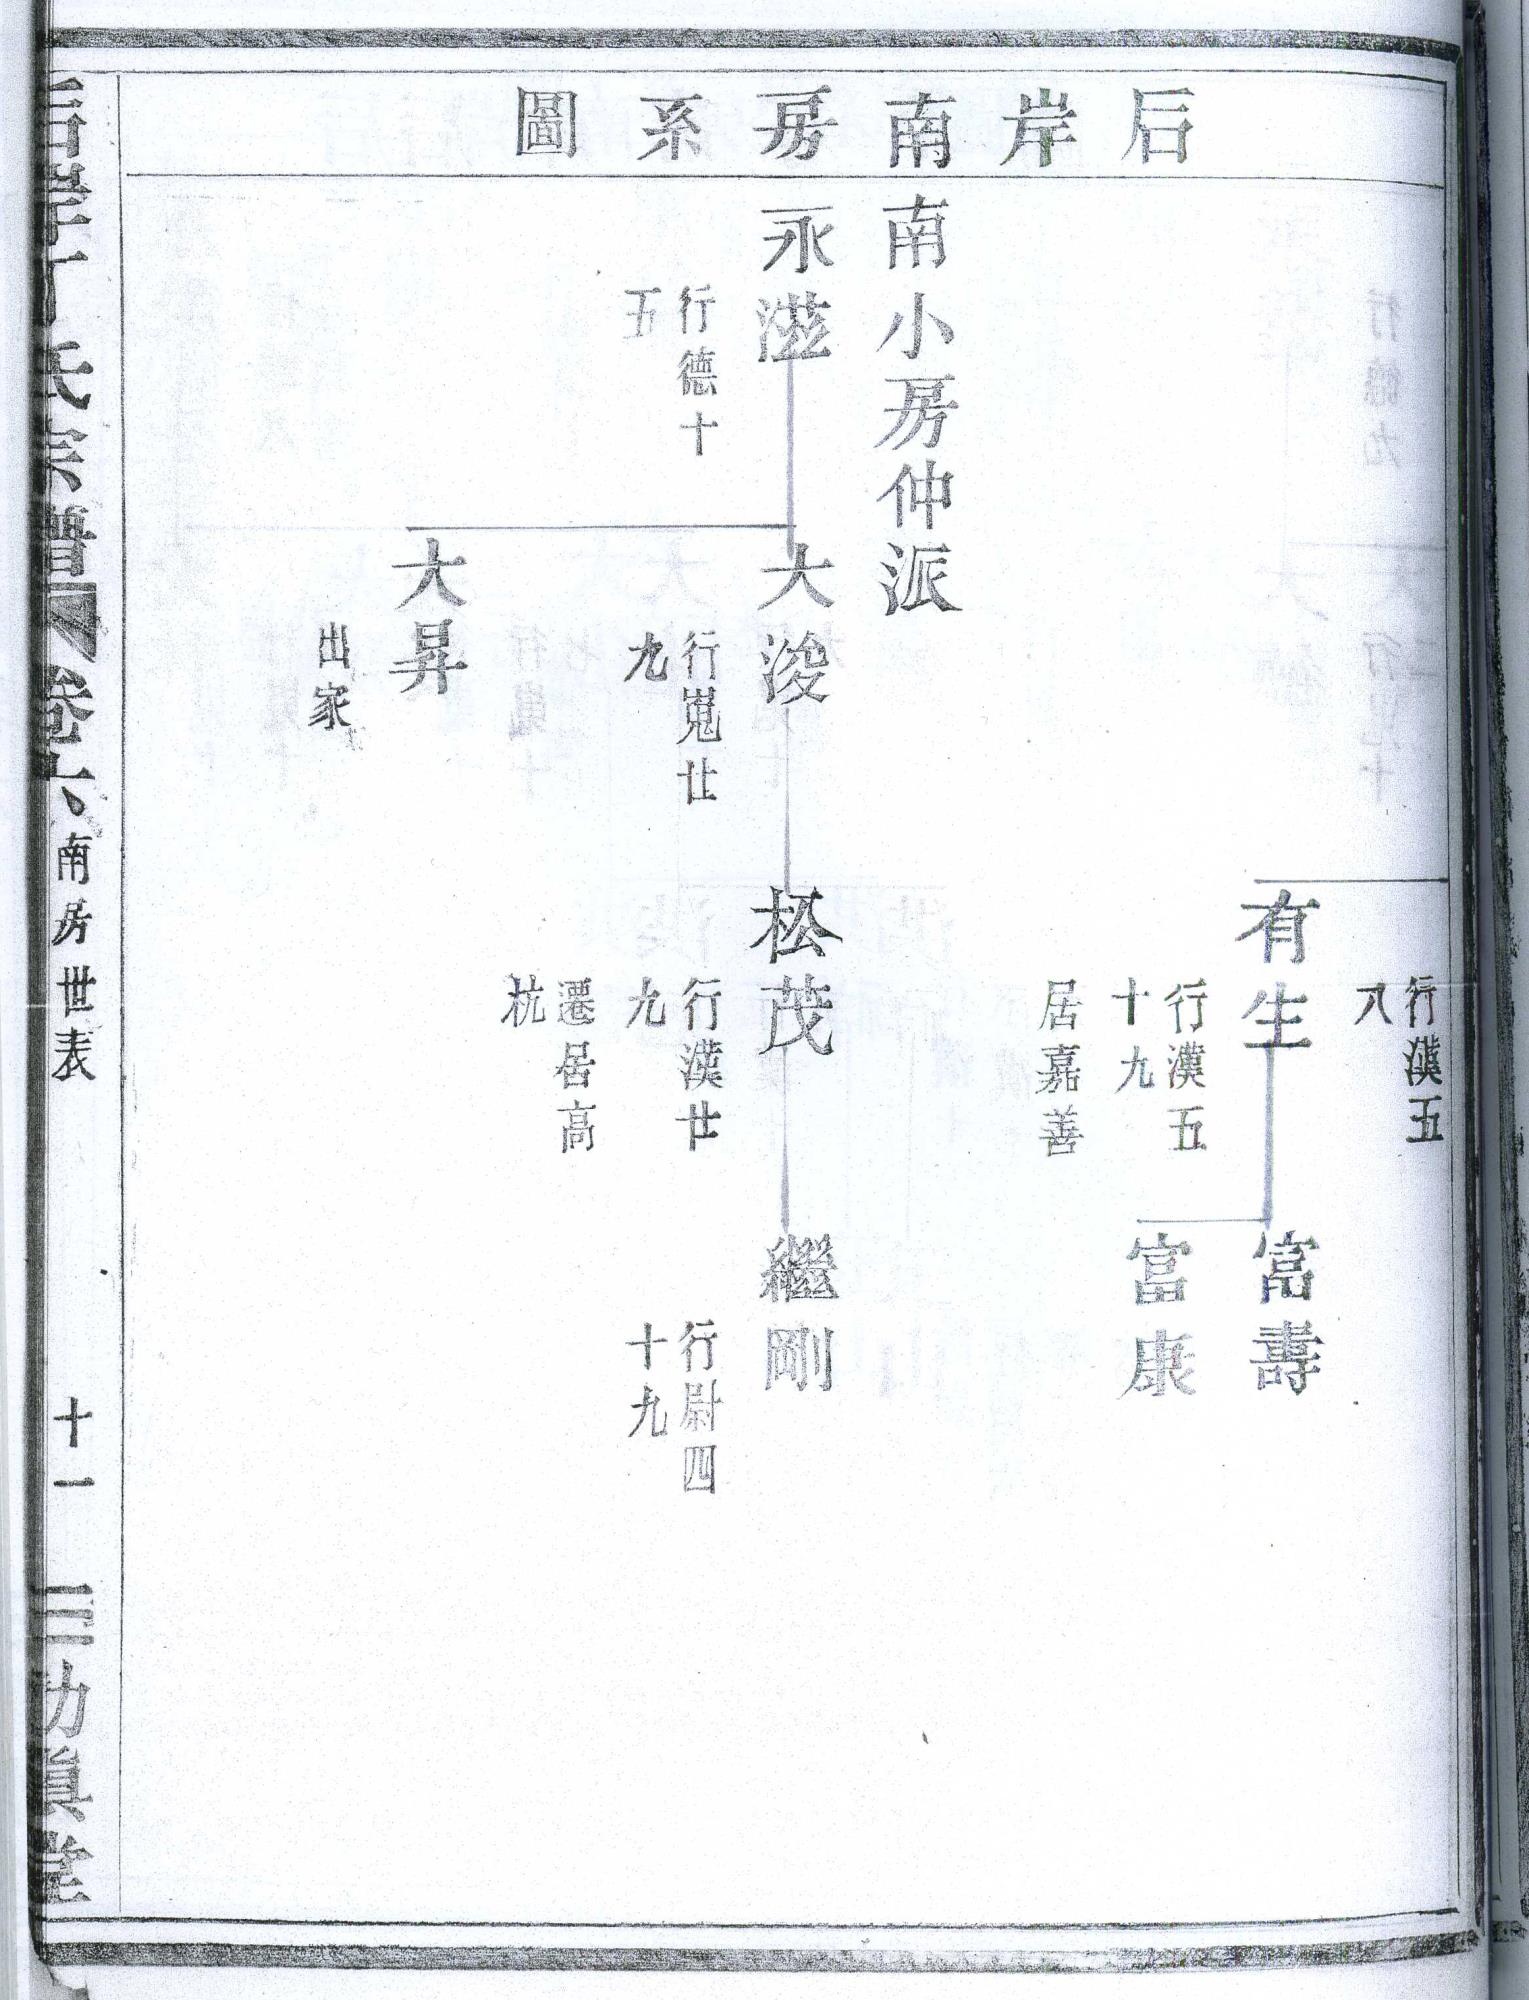 后岸南房系圖
行漢五
八
有生
行漢五
十九
居嘉善
富壽
富康
南小房仲派
永滋
行德十
五
大浚
行嵬廿
九
松茂
行漢廿
九
遷居高
杭
繼剛
行尉四
十九
大昇
出家
后岸丁氏宗譜
卷六
南房世表
十一
三
堂